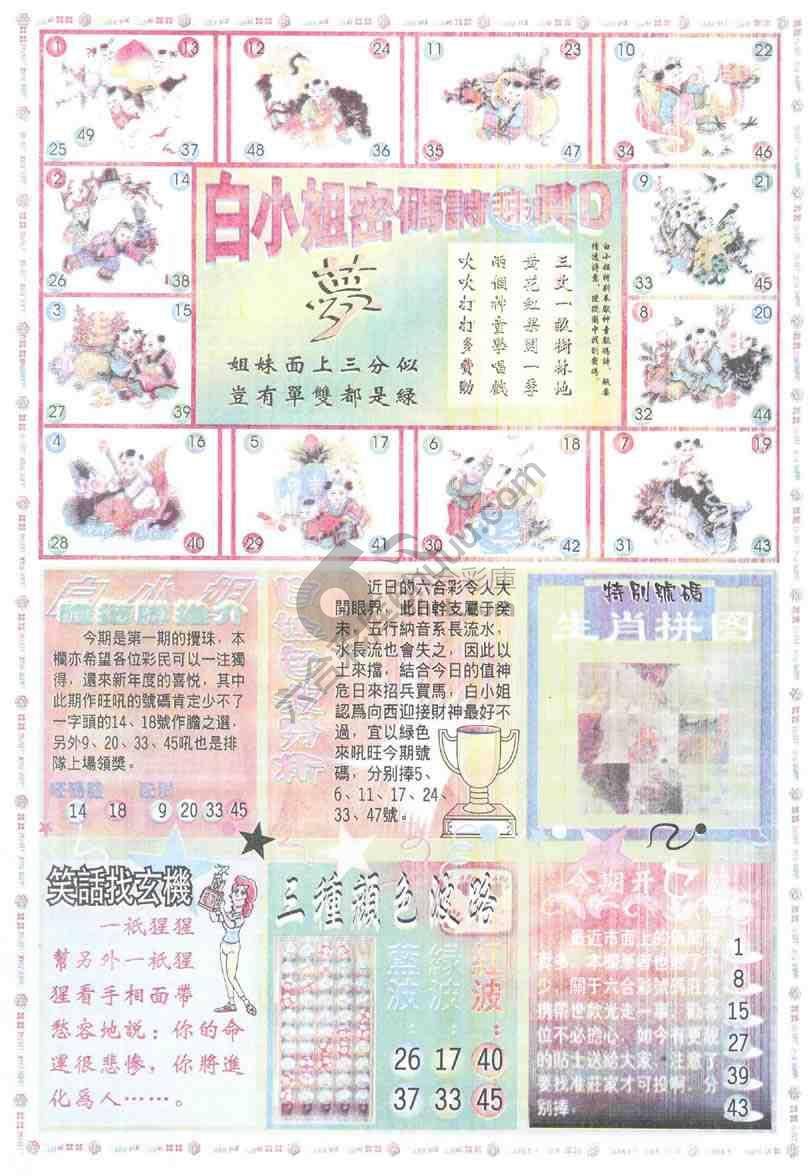 1 13 12 24 11 23 10 22
25 49 37 48 36 35 47 34 46
2 14
26 38
3 15
27 39
9 21
33 45
8 20
32 44
4 16 5 17 6 18 7 19
28 40 29 41 30 42 31 43
白小姐密碼詩
夢
姐妹面上三分似
豈有單雙都是綠
三丈一畝樹林地
黃花紅果開一季
兩個神童學唱戲
吹吹打打多費勁
白小姐
今期是第一期的攪珠，本
欄亦希望各位彩民可以一注獨
得，還來新年度的喜悅，其中
此期作旺吼的號碼肯定少不了
一字頭的14、18號作膽之選，
另外9、20、33、45吼也是排
隊上場領獎。
14 18 9 20 33 45
近日的六合彩令人大
開眼界，此日幹支屬于癸
未，五行納音系長流水，
水長流也會失之，因此以
土來擋，結合今日的值神
危日來招兵買馬，白小姐
認爲向西迎接財神最好不
過，宜以綠色
來吼旺今期號
碼，分别捧5、
6、11、17、24、
33、47號。
特别號碼
生肖拼圖
笑話找玄機
一祇猩猩
幫另外一祇猩
猩看手相面帶
愁容地説：你的命
運很悲慘，你將進
化爲人……。
三種顏色波路
藍波：
26
37
綠波：
17
33
紅波：
40
45
今期开
位不必擔心，如今有更
的貼士送給大家，注意了
要找准莊家才可投啊，分
别捧：
1
8
15
27
39
43